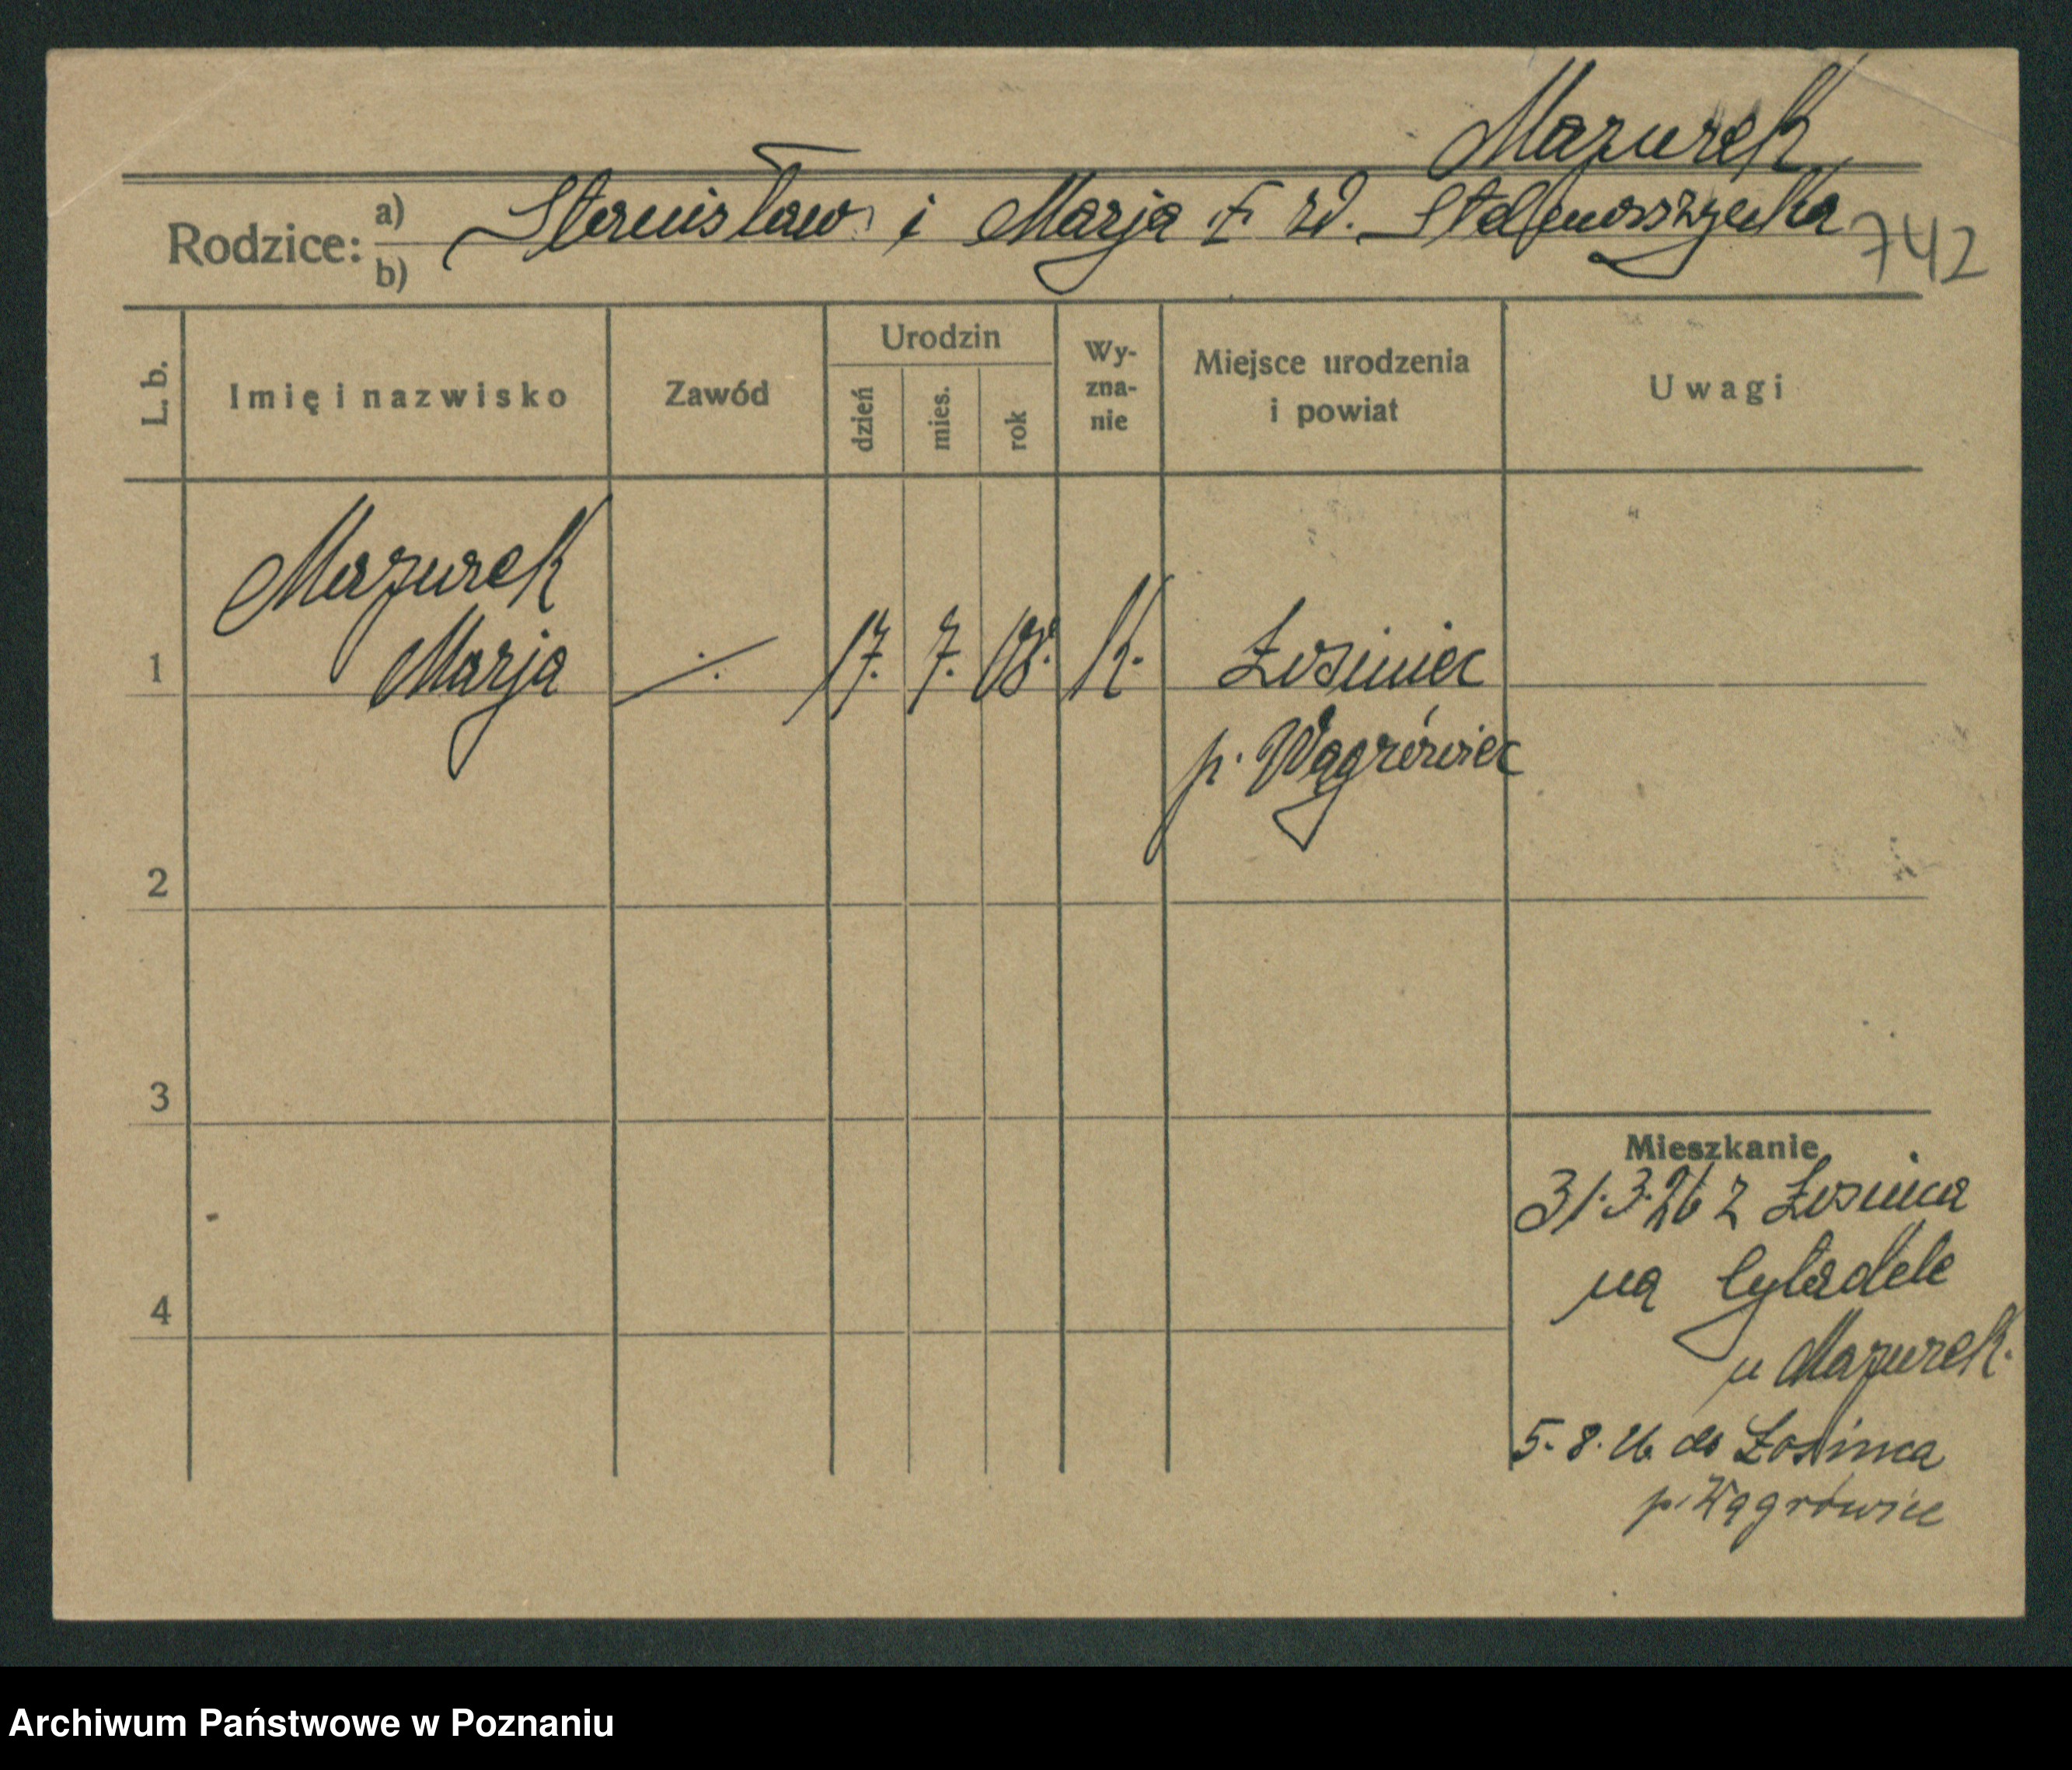 Mazurek
Rodzice: a) b) Stanisław i Marja z rd.
742
L. b.
Imię i nazwisko
Zawód
Urodzin
dzień
mies.
rok
Wy-
zna-
nie
Miejsce urodzenia
i powiat
Uwagi
Mazurek
1 Marja ./. 17. 7. 08. K. Łosiniec
p. Wągrówiec
2
3
Mieszkanie
31.3.26 z Łosinca
na Cytadele
4
u Mazurek.
5.8.26 do Łosinca
p. Wągrówiec
Archiwum Państwowe w Poznaniu